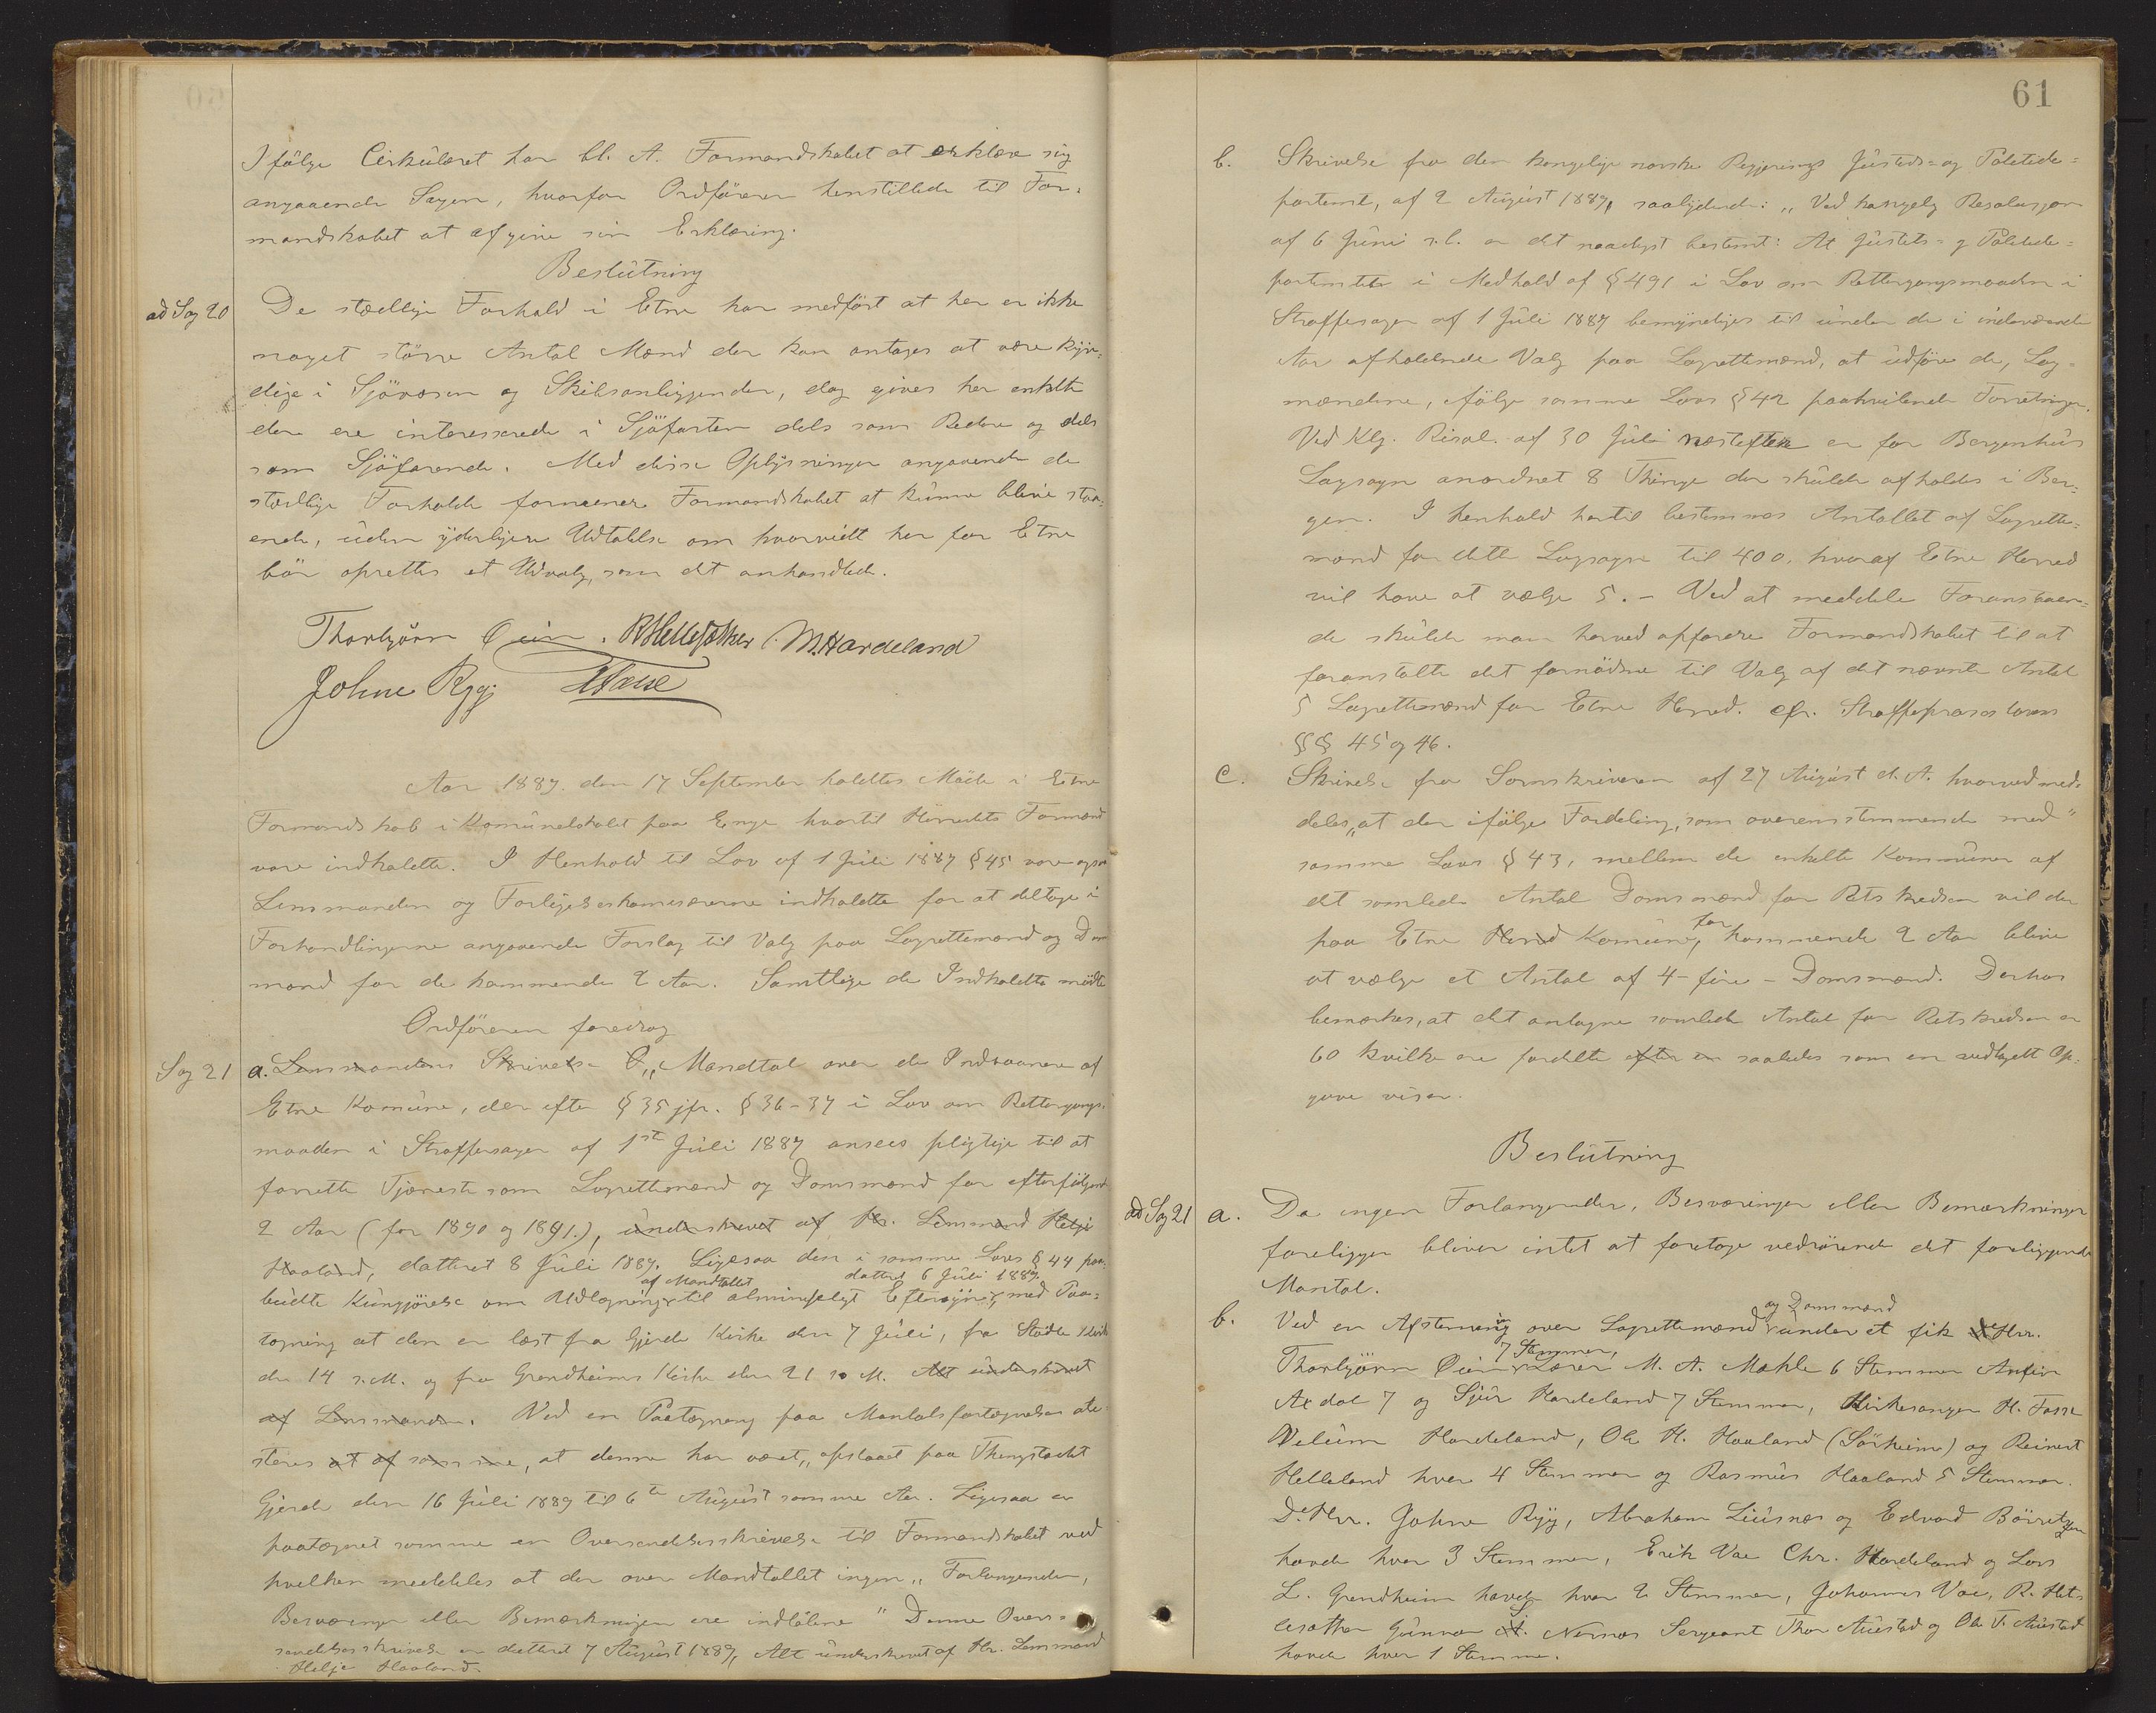 Ifølge Cirkulæret har bl. A. Formandskabet at erklære sig
angaaende Sagen, hvorfor Ordføreren henstillede til For-
mandskabet at afgive sin Erklæring.
Beslutning
ad Sag 20 De stedlige Forhold i Etne har medført at her er ikke
noget større Antal Mænd der kan antages at være kyn-
dige i Sjøvæsen og Skibsanliggender, dog gives her enkelte
der ere interesserede i Sjøfarten dels som Redere og dels
som Sjøfarende. Med disse Oplysninger angaaende de
stedlige Forholde formener Formandskabet at kunne blive staa-
ende, uden yderligere Udtalelse om hvorvidt her for Etne
bør oprettes et Udvalg, som det anhandlede.
Thorbjørn Øien. R Hellesæther M. Hardeland
Johne Rygg HFosse
Aar 1889 den 17 September holdtes Møde i Etne
Formandskab i Komunelokalet paa Enge hvortil Herredets Formænd
vare indkaldte. I Henhold til Lov af 1 Juli 1887 § 45 vare ogsaa
Lensmanden og Forligelseskomisærerne indkaldte for at deltage i
Forhandlingerne angaaende Forslag til Valg paa Lagrettemænd og Doms
mænd for de kommende 2 Aar. Samtlige de Indkaldte mødte
Ordføreren foredrog
Sag 21 a. Lensmandens Skrivelse O „Mandtal over de Indvaanere af
Etne Komune, der efter § 35 jfr. § 36-37 i Lov om Rettergangs-
maaden i Straffesager af 1st Juli 1887 ansees pligtige til at
forrette Tjeneste som Lagrettemænd og Domsmænd for efterfølgende
2 Aar (for 1890 og 1891.), underskrevet af Hr. Lensmand Helje
Haaland, datteret 8 Juli 1889. Ligesaa den i samme Lovs § 44 paa-
af Mandtallet datteret 6 Juli 1889.
budte Kungjørelse om Udlægning til almindeligt Eftersyn, med Paa-
tegning at den er læst fra Gjerde Kirke den 7 Juli, fra Stødle Kirke
den 14 s. M. og fra Grindheims Kirke den 21 s. M. Alt underskrevet
af Lensmanden. Ved en Paategning paa Mantalsfortegnelsen ate-
steres at af samme, at denne har været „opslaaet paa Thingstedet
Gjerde den 16 Juli 1889 til 6te August samme Aar. Ligesaa er
paategnet samme en Oversendelsesskrivelse til Formandskabet ved
hvilken meddeles at der over Mandtallet ingen „Forlangender,
Besværinger eller Bemærkninger ere indløbne" Denne Over-
sendelsesskrivelse er datteret 7 August 1889, Alt underskrevet af Hr. Lensmand
Helje Haaland.
61
b. Skrivelse fra den kongelige norske Regjerings Justeds- og Politide-
partement, af 2 August 1889, saalydende: „Ved kongelig Resolusjon
af 6 Juni s.l. er det naadigst bestemt: At Justets- og Politide-
partementet i Medhold af § 491 i Lov om Rettergangsmaaden i
Straffesager af 1 Juli 1887 bemyndiges til under de i indeværende
Aar afholdende Valg paa Lagrettemænd, at udføre de, Lag-
mændene, ifølge samme Lovs § 42 paahvilende Forretninger.
Ved Klg. Resol. af 30 Juli næstefter er for Bergenhus
Lagsogn anordnet 8 Thinge der skulde afholdes i Ber-
gen. I henhold hertil bestemmes Antallet af Lagrette-
mænd for dette Lagsogn til 400, hvoraf Etne Herred
vil have at vælge 5. – Ved at meddele Foranstaaen-
de skulde man herved opfordre Formandskabet til at
foranstalte det fornødne til Valg af det nævnte Antal
5 Lagrettemænd for Etne Herred. cfr. Straffeproseslovens
§§ 45 og 46.
c. Skrivelse fra Sorenskriveren af 27 August d. A. hvorved med-
deles, „at der ifølge Fordeling, som overensstemmende med"
samme Lovs § 43, mellem de enkelte Kommuner af
det samlede Antal Domsmænd for Retskredsen vil der
for
paa Etne Herred Komune, kommende 2 Aar blive
at vælge et Antal af 4 – fire – Domsmænd. Derhos
bemærkes, at det antagne samlede Antal for Retskredsen er
60 hvilke ere fordelte efter en saaledes som en vedlagt Op-
gave viser.
Beslutning
ad Sag 21 a. Da ingen Forlangender, Besværinger eller Bemærkninger
foreligger bliver intet at foretage vedrørende det foreliggende
Mantal.
og Domsmænd
b. Ved en Afstemning over Lagrettemænd under et fik Hrr.
7 Stemmer,
Thorbjørn Øien, Lærer M. A. Mæhle 6 Stemmer Anfin
Axdal 7 og Sjur Hardeland 7 Stemmer, Kirkesanger H. Fosse
Velum Hardeland, Ole H. Haaland (Sørheim) og Reinert
Helleland hver 4 Stemmer og Rasmus Haaland 5 Stemmer.
D'Hrr. Johne Rygg, Abraham Liusnæs og Edvard Børretzen
havde hver 3 Stemmer, Erik Vae Chr. Hardeland og Lars
L. Grindheim havde hver 2 Stemmer, Johannes Vae, R. Hel-
lesæther Gunnar Nernæs Sergeant Thor Austad og Ole T. Austad
havde hver 1 Stemme.